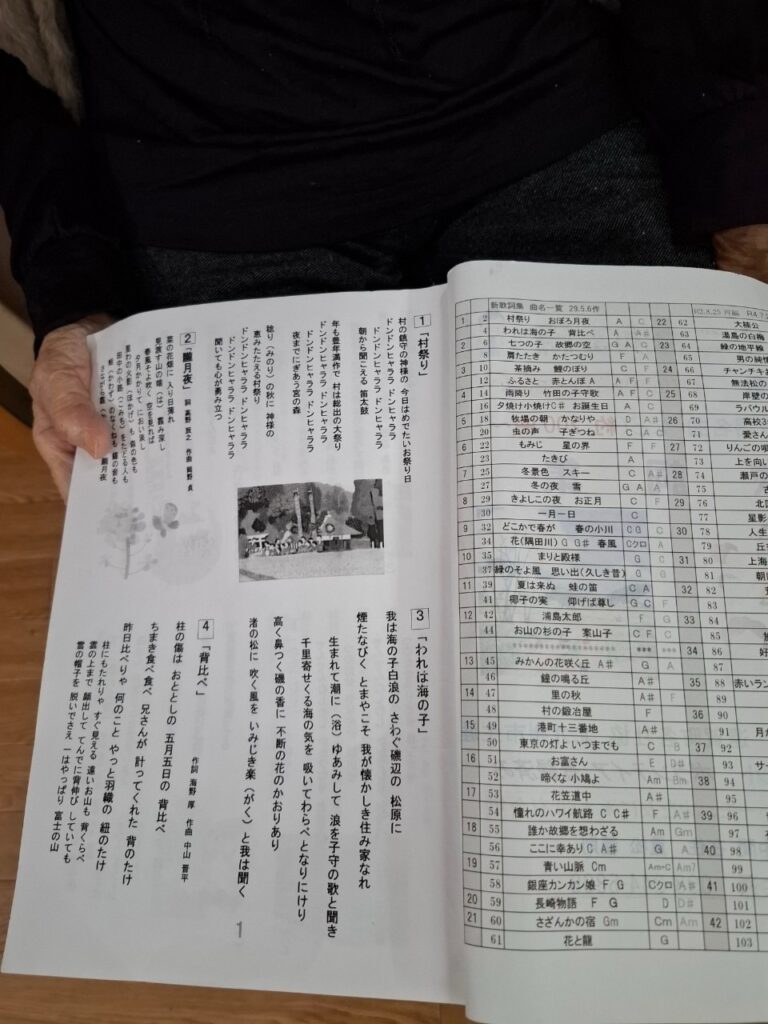 1 「村祭り」
村の鎮守の神様の 今日はめでたいお祭り日
ドンドンヒャララ ドンヒャララ
ドンドンヒャララ ドンヒャララ
朝から聞こえる 笛太鼓
年も豊年満作で 村は総出の大祭り
ドンドンヒャララ ドンヒャララ
ドンドンヒャララ ドンヒャララ
夜までにぎあう宮の森
稔り(みのり)の秋に 神様の
恵みたたえる村祭り
ドンドンヒャララ ドンヒャララ
ドンドンヒャララ ドンヒャララ
聞いても心が勇み立つ
2 「朧月夜」 詞 高野 辰之 作曲 岡野 貞
菜の花畑に 入り日薄れ
見渡す山の端(は) 霞み深し
春風そよ吹く 空を見れば
夕月かかりて におい淡し
里わの火影(ほかげ)も 森の色も
田中の小路(こみち)を たどる人も
朧月夜
3 「われは海の子」
我は海の子白浪の さわぐ磯辺の 松原に
煙たなびく とまやこそ 我が懐かしき住み家なれ
生まれて潮に(浴)ゆあみして 浪を子守の歌と聞き
千里寄せくる海の気を 吸いてわらべとなりにけり
高く鼻つく磯の香に 不断の花のかおりあり
渚の松に 吹く風を いみじき楽(がく)と 我は聞く
4 「背比べ」
作詞 海野 厚 作曲 中山 晋平
柱の傷は おととしの 五月五日の 背比べ
ちまき食べ食べ 兄さんが 計ってくれた 背のたけ
昨日比べりゃ 何のこと やっと羽織の 紐のたけ
柱にもたれりゃ すぐ見える 遠いお山も 背くらべ
雲の上まで 顔出して てんでに背伸び していても
雪の帽子を 脱いでさえ 一はやっぱり 富士の山
1
新歌詞集 曲名一覧 29.5.6作 R2.8.25 R4.7.
1 2 村祭り おぼろ月夜 A C 22 62 大楠公
4 われは海の子 背比べ A A# 63 湯島の白梅
2 6 七つの子 故郷の空 G A C 23 64 緑の地平線
8 肩たたき かたつむり F A 65 男の純情
3 10 茶摘み 鯉のぼり C F 24 66 チャンチキお
12 ふるさと 赤とんぼ A F F 67 無法松の
4 14 雨降り 竹田の子守歌 A F C 25 68 岸壁の
16 夕焼け小焼けC# お誕生日 A C 69 ラバウル
5 18 牧場の朝 かなりや D A# 26 70 高校3
20 虫の声 子ぎつね C A C 71 愛さん
6 22 もみじ 星の界 F F 27 72 りんごの唄
23 たきび A 73 上を向い
7 25 冬景色 スキー C A# 28 74 瀬戸の
27 冬の夜 雪 G A A 75
8 29 きよしこの夜 お正月 C F 29 76 北国
30 一月一日 C 77 星影
9 32 どこかで春が 春の小川 C G C 30 78 人生
34 花(隅田川) G G# 春風 Cクロ A 79 丘
10 35 まりと殿様 G C 31 80 上海
37 緑のそよ風 思い出(久しき昔) G G 81 朝
11 39 夏は来ぬ 蛙の笛 C A 32 82
41 椰子の実 仰げば尊し G C F 83
12 42 浦島太郎 F G 33 84
44 お山の杉の子 案山子 C F C 85 旅
34 86 好
13 45 みかんの花咲く丘 A# G A 87
46 鐘の鳴る丘 A# 35 88 赤いラン
14 47 里の秋 A# F 89
48 村の鍛冶屋 F 36 90
15 49 港町十三番地 A# 91 月が
50 東京の灯よ いつまでも C B 37 92
16 51 お富さん E D# 93 サー
52 啼くな 小鳩よ Am Bm 38 94
17 53 花笠道中 A# 95
54 憧れのハワイ航路 C C# F A# 39 96
18 55 誰か故郷を想わざる Am Gm 97
56 ここに幸あり C A# G A 40 98
19 57 青い山脈 Cm Am~C Am7 99
58 銀座カンカン娘 F G Cクロ A# 41 100
20 59 長崎物語 F G D D# 101
21 60 さざんかの宿 Gm Cm Am 42 102
61 花と龍 G 103